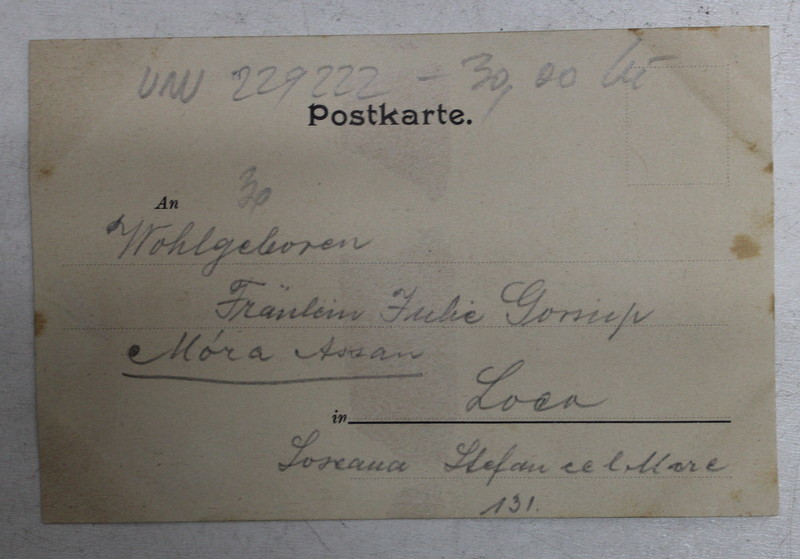 229222 - 30,00
Postkarte.
An 30
Wohlgeboren
Fräulein Julie
Móra Assan
in Loco
Soseaua Stefan cel Mare
131.